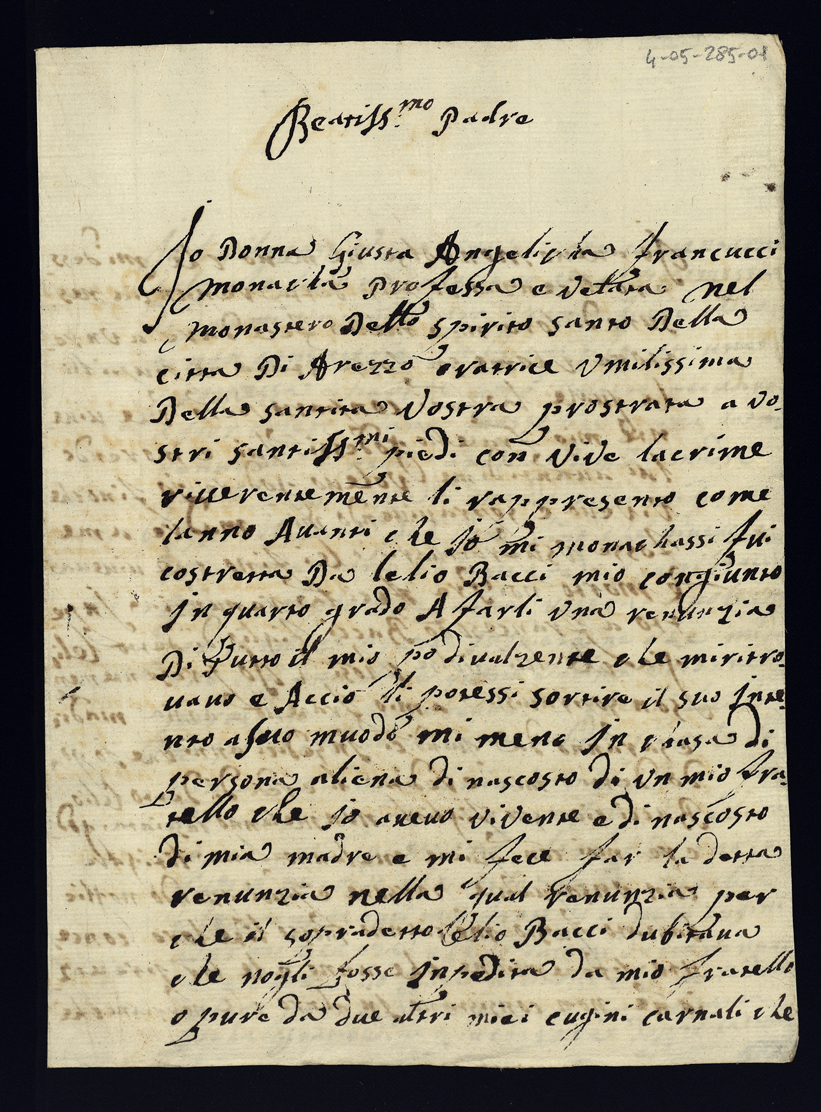 4-05-285-01
Beatiss.mo Padre
Io Donna Giusta Angelicha Francucci
Monacha Professa e Velata nel
Monastero Dello Spirito Santo Della
citta Di Arezzo oratrice Vmilissima
Della santita Vostra prostrata a vo-
stri santiss.mi piedi con vive lacrime
riuerentemente li rappresento come
lanno Auanti che io mi monachassi fui
costretta Da lelio Bacci mio congiunto
in quarto grado A farli vna renunzia
Di Tutto il mio podiualzente che miritro-
uauo e Acciò li potessi sortire il suo inte-
nto assuo muodo mi menò in chasa di
persona aliena di nascosto di vn mio fra-
tello che io aueuo vivente e di nascosto
di mia madre e mi fece far la detta
renunzia nella qual renunzia per
che il sopradetto lelio Bacci dubitaua
che nogli fosse inpedita da mio fratello
o pure da due altri miei cugini carnali che